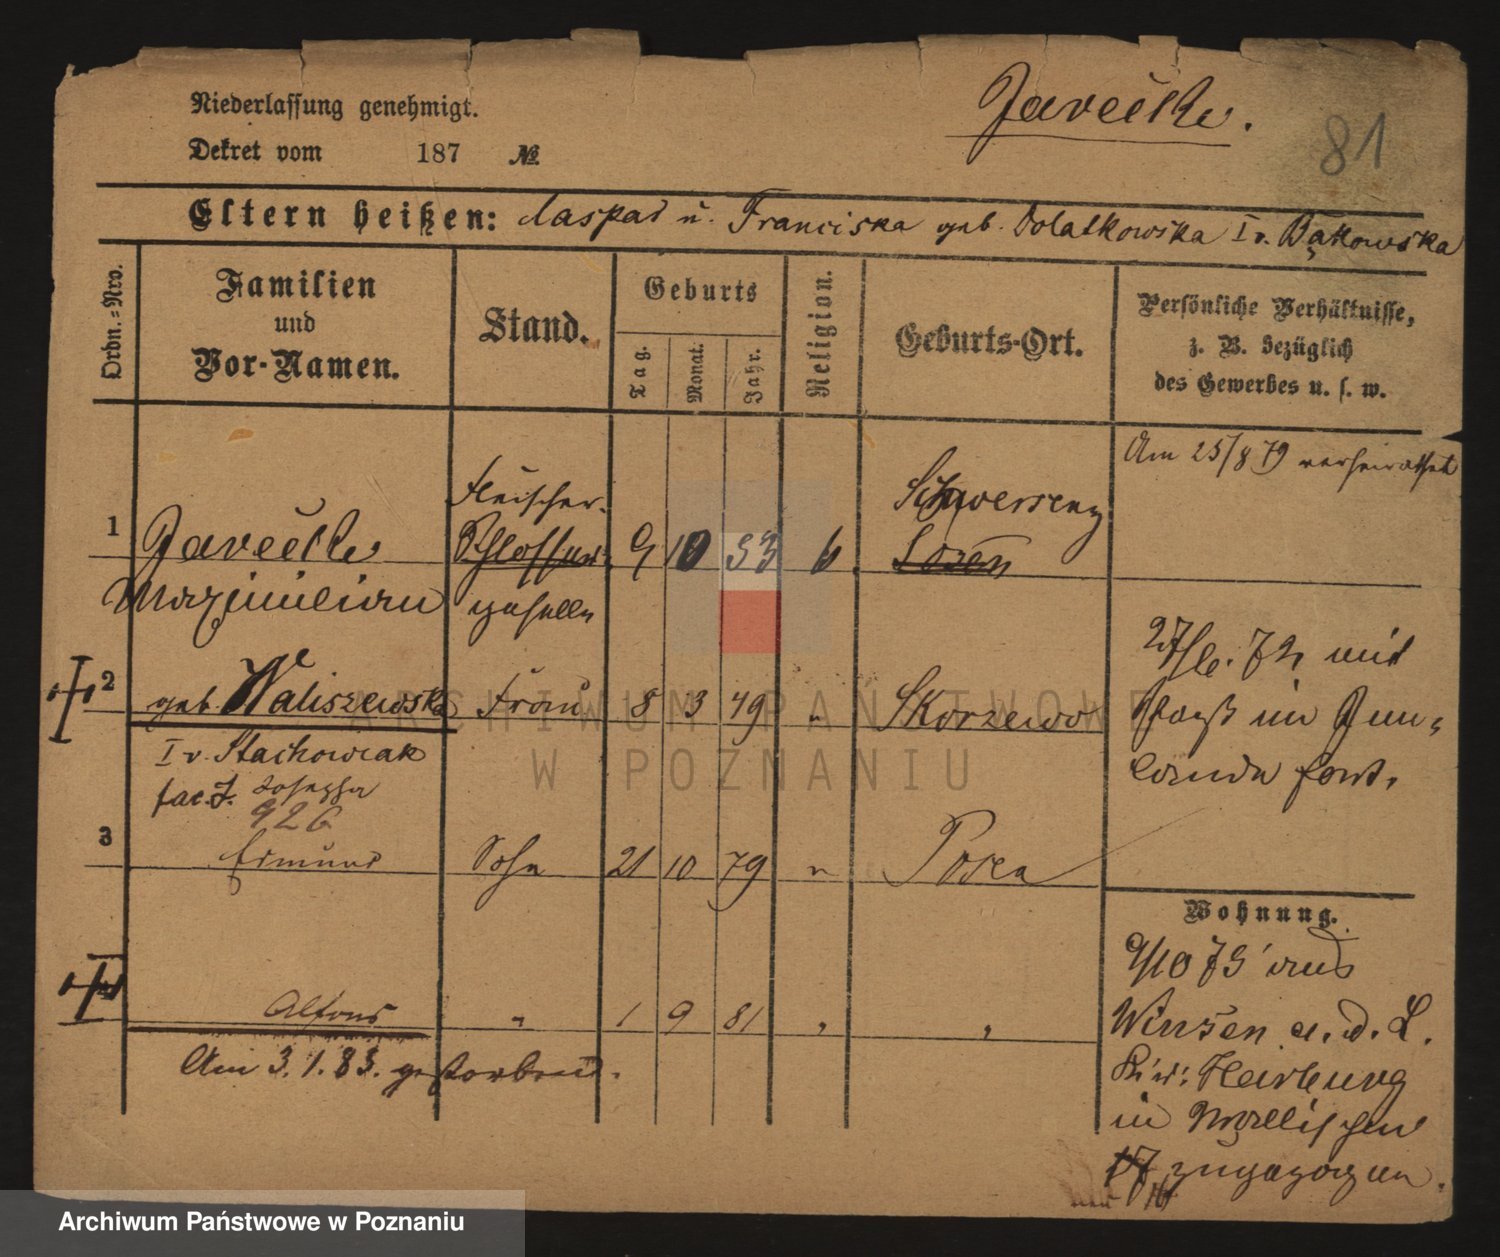 Niederlassung genehmigt.
Dekret vom 187 №
81
Eltern heißen: Caspar u. Franciska geb. Dolatkowska I v. Bąkowska
Ordn.-Nro.
Familien
und
Vor-Namen.
Stand.
Geburts
Tag.
Monat.
Jahr.
Religion.
Geburts-Ort.
Persönliche Verhältnisse,
z. B. bezüglich
des Gewerbes u. s. w.
Am 25/8 79 verheirathet
1
Maximilian
Fleischer-
Schlosser
geselle
9 10 53
Schwersenz
Posen
2 geb. Waliszewska Frau 8 3 49 " Skorzewo
I v. Stachowiak
Josepha
926
27/6. 72 mit
Paß im Inn-
lande fort.
3 Edmund Sohn 21 10 79 " Posen
Wohnung.
9/10 75 aus
Winsen a. d. L.
Harburg
in
17 zugezogen.
Alfons " 1 9 81 " "
Am 3. 1. 83. gestorben.
ARCHIWUM PAŃSTWOWE
W POZNANIU
Archiwum Państwowe w Poznaniu